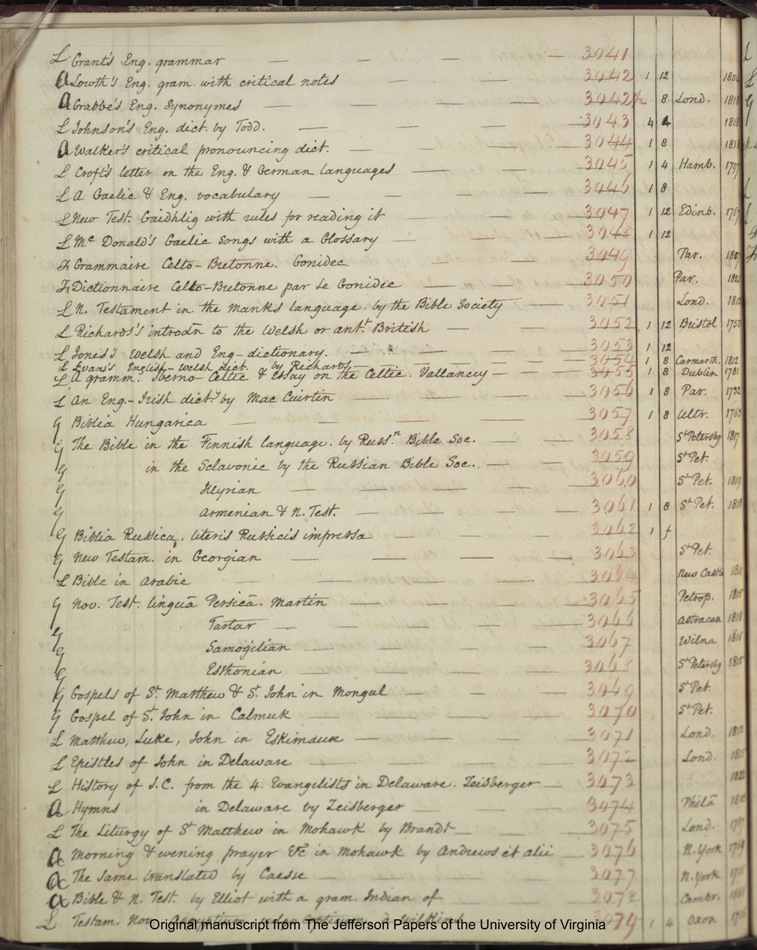 L Grant's Eng. grammar 3041
a Lowth's Eng. gram. with critical notes 3042 1 12
a Crabbe's Eng. Synonymes 3042½ 8 Lond.
L Johnson's Eng. dict. by Todd. 3043 4 4
a Walker's critical pronouncing dict. 3044 1 8
L Croft's letter on the Eng. & German languages 3045 1 4 Hamb. 1797
L A Gaelic & Eng. vocabulary 3046 1 8
L New Test. Gaidhlig with rules for reading it 3047 1 12 Edinb. 1767
L Mc Donald's Gaelic Songs with a Glossary 3048 1 12
Fr Grammaire Celto-Bretonne. Gonidec 3049 Par.
Fr Dictionnaire Celto-Bretonne par Le Gonidec 3050 Par.
L N. Testament in the manks language. by the Bible Society 3051 Lond.
L Richards's introdn to the Welsh or ant. British 3052 1 12 Bristol
L Jones's Welsh and Eng-dictionary. 3053 1 12
L Evans's English-Welsh dict. by Richards. 3054 1 8 Carmarth. 1812
L A gramm. Iberno-Celtic & Essay on the Celtic. Vallancey 3055 1 8 Dublin 1781
L An Eng.-Irish dict.y by Mac Cuirtin 3056 1 8 Par. 1732
G Biblia Hungarica 3057 1 8 Ultr.
G The Bible in the Finnish language. by Russ.n Bible Soc. 3058 St Petersbg 1817
G in the Sclavonic by the Russian Bible Soc. 3059 St Pet.
G Illyrian 3060 St Pet.
G Armenian & N. Test. 3061 1 8 St Pet.
G Biblia Russica, literis Russicis impressa 3062 1 f
G New Testam. in Georgian 3063 St Pet.
L Bible in Arabic 3064 New Castle
G Nov. Test. linguâ Persicâ. Martin 3065 Petrop. 1815
G Tartar 3066 Astracan
G Samogitian 3067 Wilna 1816
G Esthonian 3068 St Petersbg 1815
G Gospels of St. Matthew & St. John in Mongul 3069 St Pet.
G Gospel of St. John in Calmuk 3070 St Pet.
L Matthew, Luke, John in Eskimaux 3071 Lond. 1813
L Epistles of John in Delaware 3072 Lond.
L History of J.C. from the 4. Evangelists in Delaware. Zeisberger 3073
a Hymns in Delaware by Zeisberger 3074 Philã
L The Liturgy of St Matthew in Mohawk by Brandt 3075 Lond. 1787
a Morning & evening prayer &c in Mohawk by Andrews et alii 3076 N. York
a The Same translated by Caesse 3077 N. York
a Bible & N. Test. by Elliot with a gram. Indian of 3078 Cambr.
L Testam. Nov. 3079 1 4 Oxon
Original manuscript from The Jefferson Papers of the University of Virginia